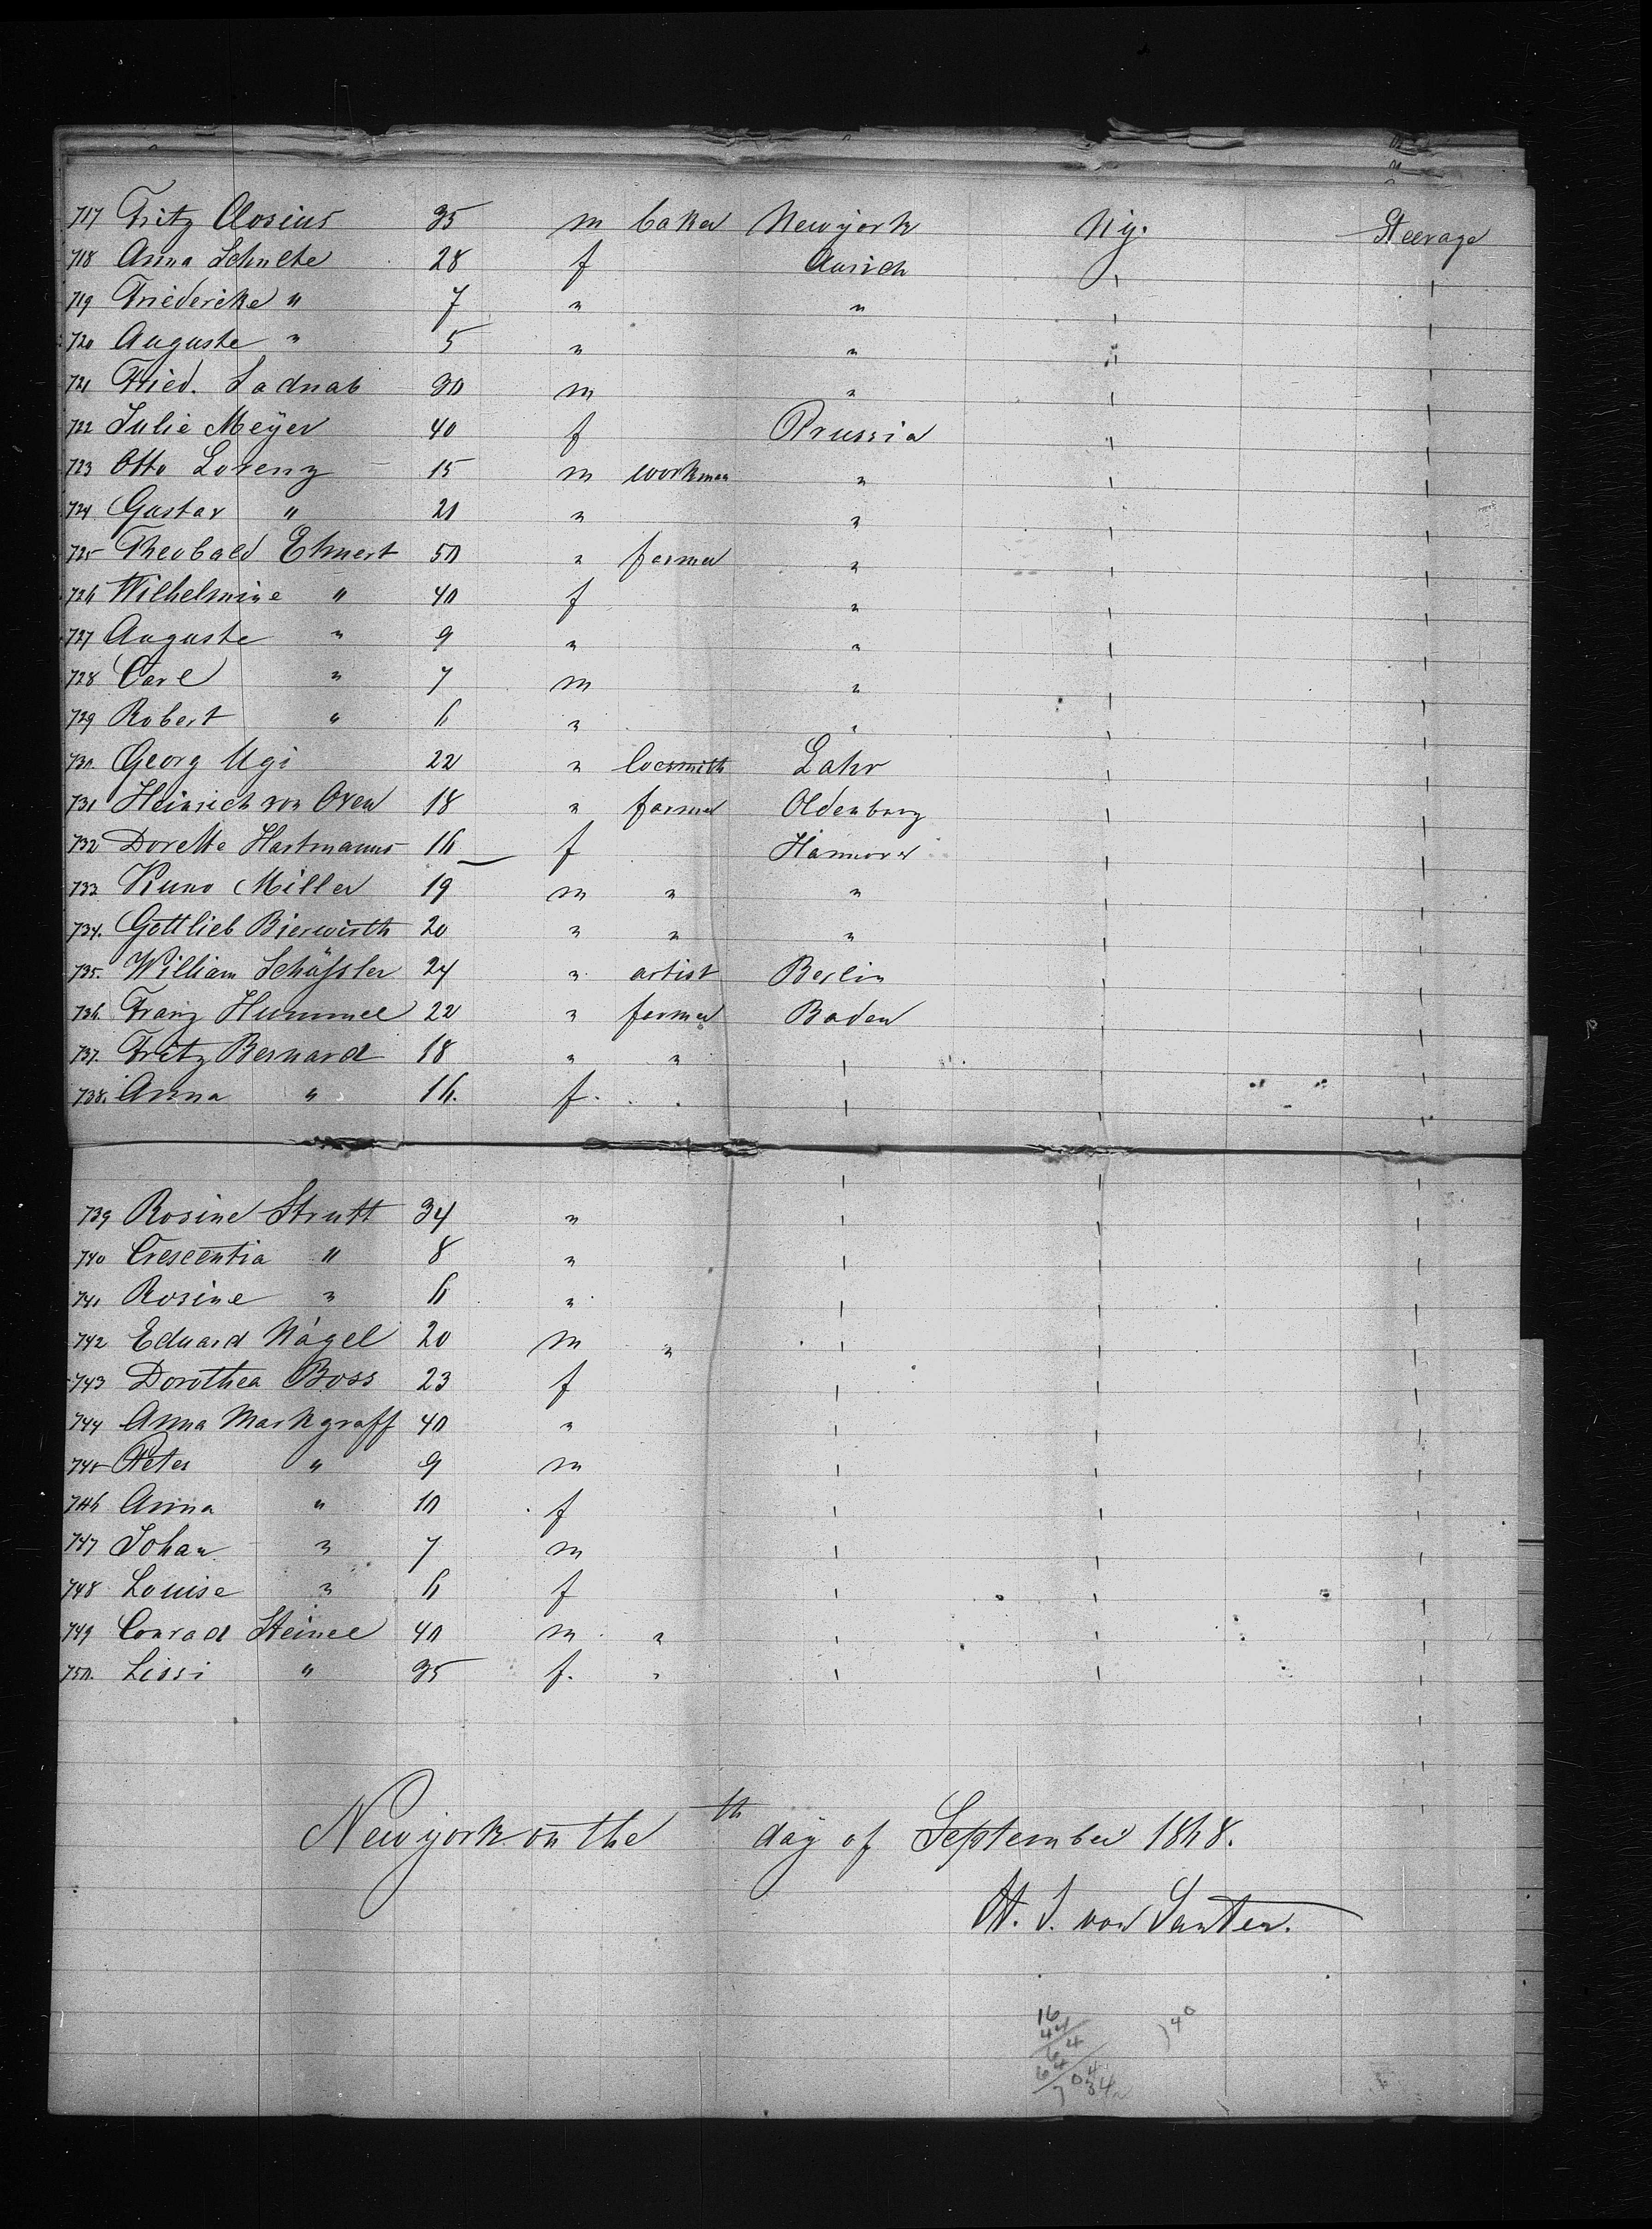 717 Fritz Closius 35 m baker Newyork Ny. Steerage
718 Anna Schulte 28 f Aurich
719 Friedericke " 7 " "
720 Auguste " 5 " "
721 Fried. Ladnab 30 m "
722 Julie Meÿer 40 f Prussia
723 Otto Lorenz 15 m workman "
724 Gustav " 21 " "
725 Theobald Ehnert 50 " farmer "
726 Wilhelmine " 40 f "
727 Auguste " 9 " "
728 Carl " 7 m "
729 Robert " 6 " "
730. Georg Ugi 22 " locsmith Lahr
731 Heinrich von Oven 18 " farmer Oldenburg
732 Dorette Hartmanns 16 f Hannover
733 Kuno Miller 19 m " "
734. Gottlieb Bierwirth 20 " " "
735. William Schüssler 24 " artist Berlin
736. Franz Hummel 22 " farmer Baden
737. Fritz Bernard 18 " "
738. Anna " 16. f.
739 Rosine Strutt 34 "
740 Crescentia " 8 "
741 Rosine " 6 "
742 Eduard Nägel 20 m "
743 Dorothea Boss 23 f
744 Anna Markgraff 40 "
745 Peter " 9 m
746 Anna " 10 f
747 Johan " 7 m
748 Louise " 6 f
749 Conrad Steinel 40 m "
750. Lissi " 35 f. "
Newyork on the th day of September 1868.
H. J. von Santen.
16
44
64
64
704
34
740